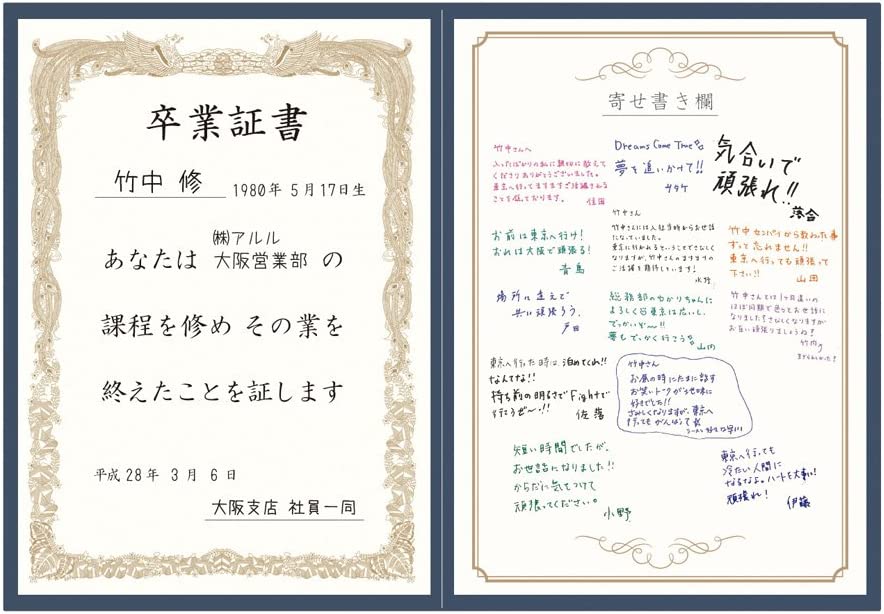 卒業証書
竹中 修 1980年 5月17日生
(株)アルル
あなたは 大阪営業部 の
課程を修め その業を
終えたことを証します
平成28年 3月 6日
大阪支店 社員一同
寄せ書き欄
竹中さんへ
入ったばかりの私に親切に教えて
くださりありがとうございました。
東京へ行ってますますご活躍される
ことを
佳田
Dreams Come True
夢を追いかけて!!
サタケ
気合いで
頑張れ!!
落合
お前は東京へ行け!
おれは大阪で頑張る!
青島
竹中さん
竹中さんには入社当時からお世話
になっていました。
東京に行かれるということでさびしく
なりますが、竹中さんのますますの
ご活躍を期待しています!
水野
竹中センパイから教わった事
ずって忘れません!!
東京へ行っても頑張って
下さい!!
山田
場所は違えど
共に頑張ろう。
戸田
総務部のゆかりちゃんに
よろしく 東京は広いし、
でっかいぞ〜!!
夢もでっかく行こう。
山内
竹中さんとは1ヶ月違いの
ほぼ同期で色々とお世話に
なりました!さびしくなりますが
お互い頑張りましょうね!
竹内
東京へ行った時は 泊めてくれ!!
なんてな!!
持ち前の明るさでFightで
行こうぜ〜!!
佐藤
竹中さん
お昼の時にたまに話す
お笑いトークが
好きでした!!
さみしくなりますが、東京へ
行ってもがんばって
短い時間でしたが、
お世話になりました!!
からだに気をつけて
頑張ってください。
小野
東京へ行っても
冷たい人間に
なるなよ。ハートを大事に!
頑張れ!
伊藤